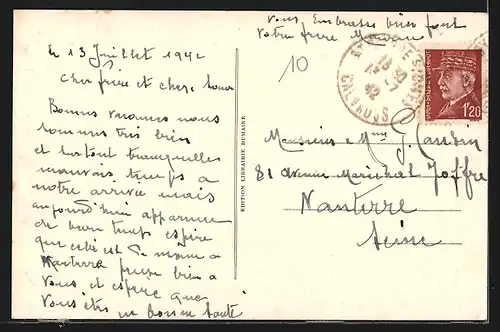 le 13 Juillet 1942
Cher frère et chere soeur
Bonnes vacances nous
sommes très bien
et surtout tranquilles
mauvais temps a
notre arrivé mais
aujourd'hui apparence
de beau temps espère
que cela est de même a
Nanterre pense bien a
vous et espère que
vous êtes en bonne santé
EDITION LIBRAIRIE DUMAINE
Vous Embrasse bien fort
Votre frère
10
1F20
Monsieur Mme J.
81 Avenue Maréchal Joffre
Nanterre
Seine